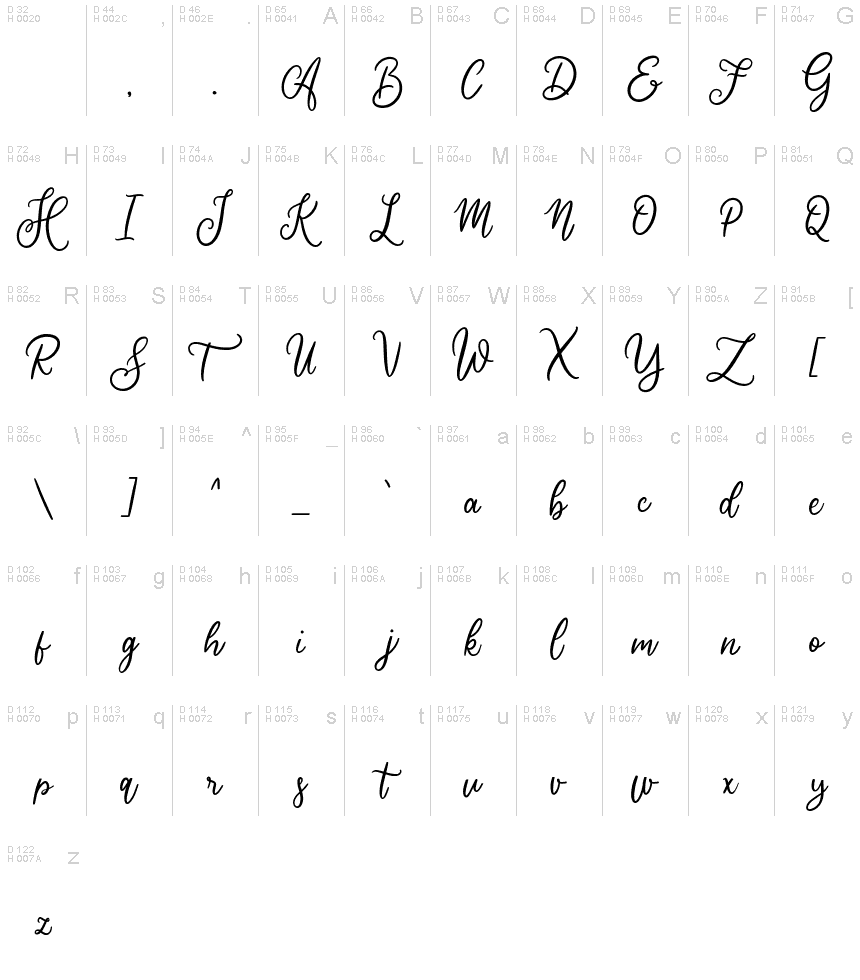 D 32 H 0020 D 44 H 002C , D 46 H 002E . D 65 H 0041 A D 66 H 0042 B D 67 H 0043 C D 68 H 0044 D D 69 H 0045 E D 70 H 0046 F D 71 H 0047 G
, . A B C D E F G
D 72 H 0048 H D 73 H 0049 I D 74 H 004A J D 75 H 004B K D 76 H 004C L D 77 H 004D M D 78 H 004E N D 79 H 004F O D 80 H 0050 P D 81 H 0051 Q
H I J K L M N O P Q
D 82 H 0052 R D 83 H 0053 S D 84 H 0054 T D 85 H 0055 U D 86 H 0056 V D 87 H 0057 W D 88 H 0058 X D 89 H 0059 Y D 90 H 005A Z D 91 H 005B [
R S T U V W X Y Z [
D 92 H 005C \ D 93 H 005D ] D 94 H 005E ^ D 95 H 005F _ D 96 H 0060 ` D 97 H 0061 a D 98 H 0062 b D 99 H 0063 c D 100 H 0064 d D 101 H 0065 e
\ ] ^ _ ` a b c d e
D 102 H 0066 f D 103 H 0067 g D 104 H 0068 h D 105 H 0069 i D 106 H 006A j D 107 H 006B k D 108 H 006C l D 109 H 006D m D 110 H 006E n D 111 H 006F o
f g h i j k l m n o
D 112 H 0070 p D 113 H 0071 q D 114 H 0072 r D 115 H 0073 s D 116 H 0074 t D 117 H 0075 u D 118 H 0076 v D 119 H 0077 w D 120 H 0078 x D 121 H 0079 y
p q r s t u v w x y
D 122 H 007A z
z